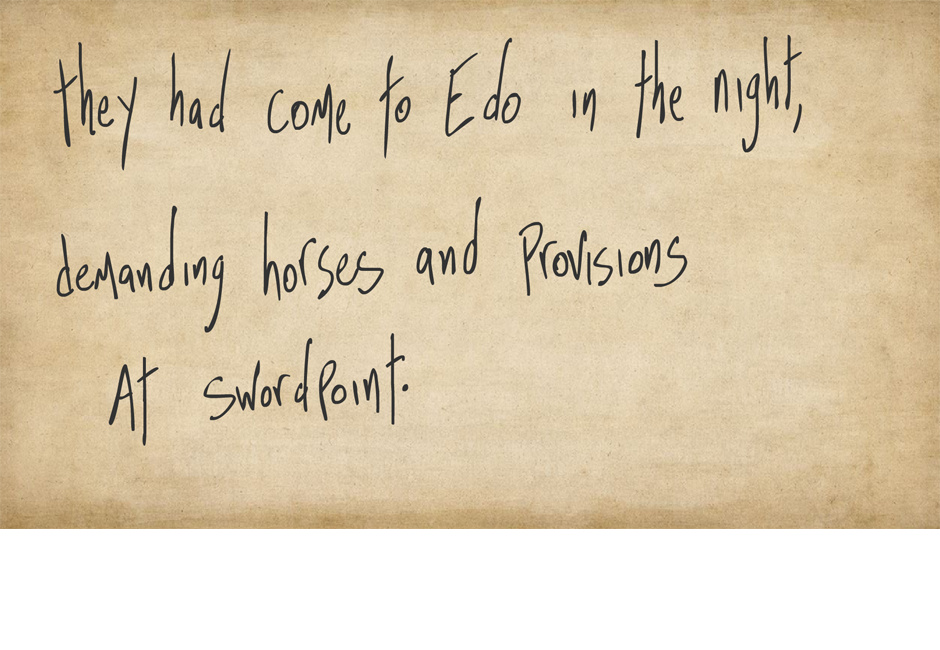 they had come to Edo in the night,
demanding horses and Provisions
At swordPoint.